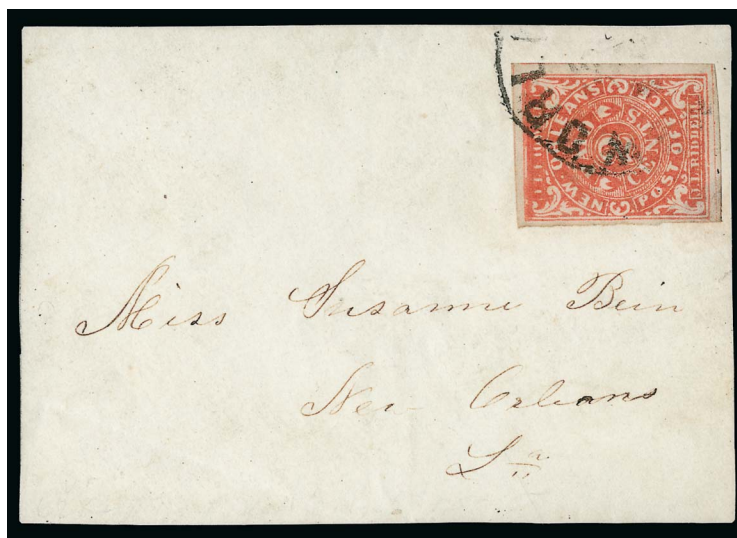 NEW ORLEANS POST OFFICE
2 CENTS
J.L. RIDDELL
Miss Susanne Bein
New Orleans
La